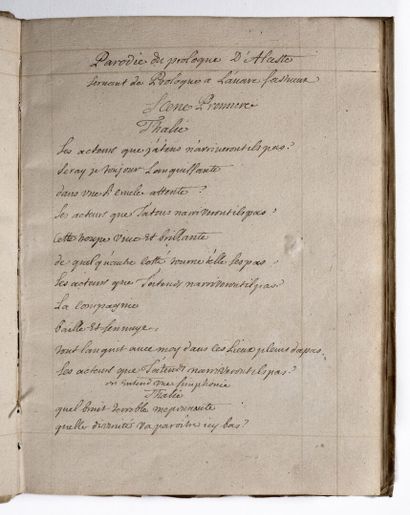 Parodie du prologue D'Alceste
servant de Prologue a L'auare fastueux
Scene Premiere
Thalie
Les acteurs que j'atens n'arriveront ils pas?
Seray je toujours Languissante
dans une si cruele attente?
Les acteurs que J'atens n'arriveront ils pas?
Cette troupe vive Et brillante
de quelqu'autre costé tourne t'elle ses pas
Les acteurs que J'atends n'arriveront ils pas?
La compagnie
baille Et s'ennuye.
tout languit avec moy dans ces Lieux pleins d'apas
Les acteurs que J'atends n'arriveront ils pas?
on entend une simphonie
Thalie
quel bruit terrible m'epouvante
quelle divinité va paroître icy bas?